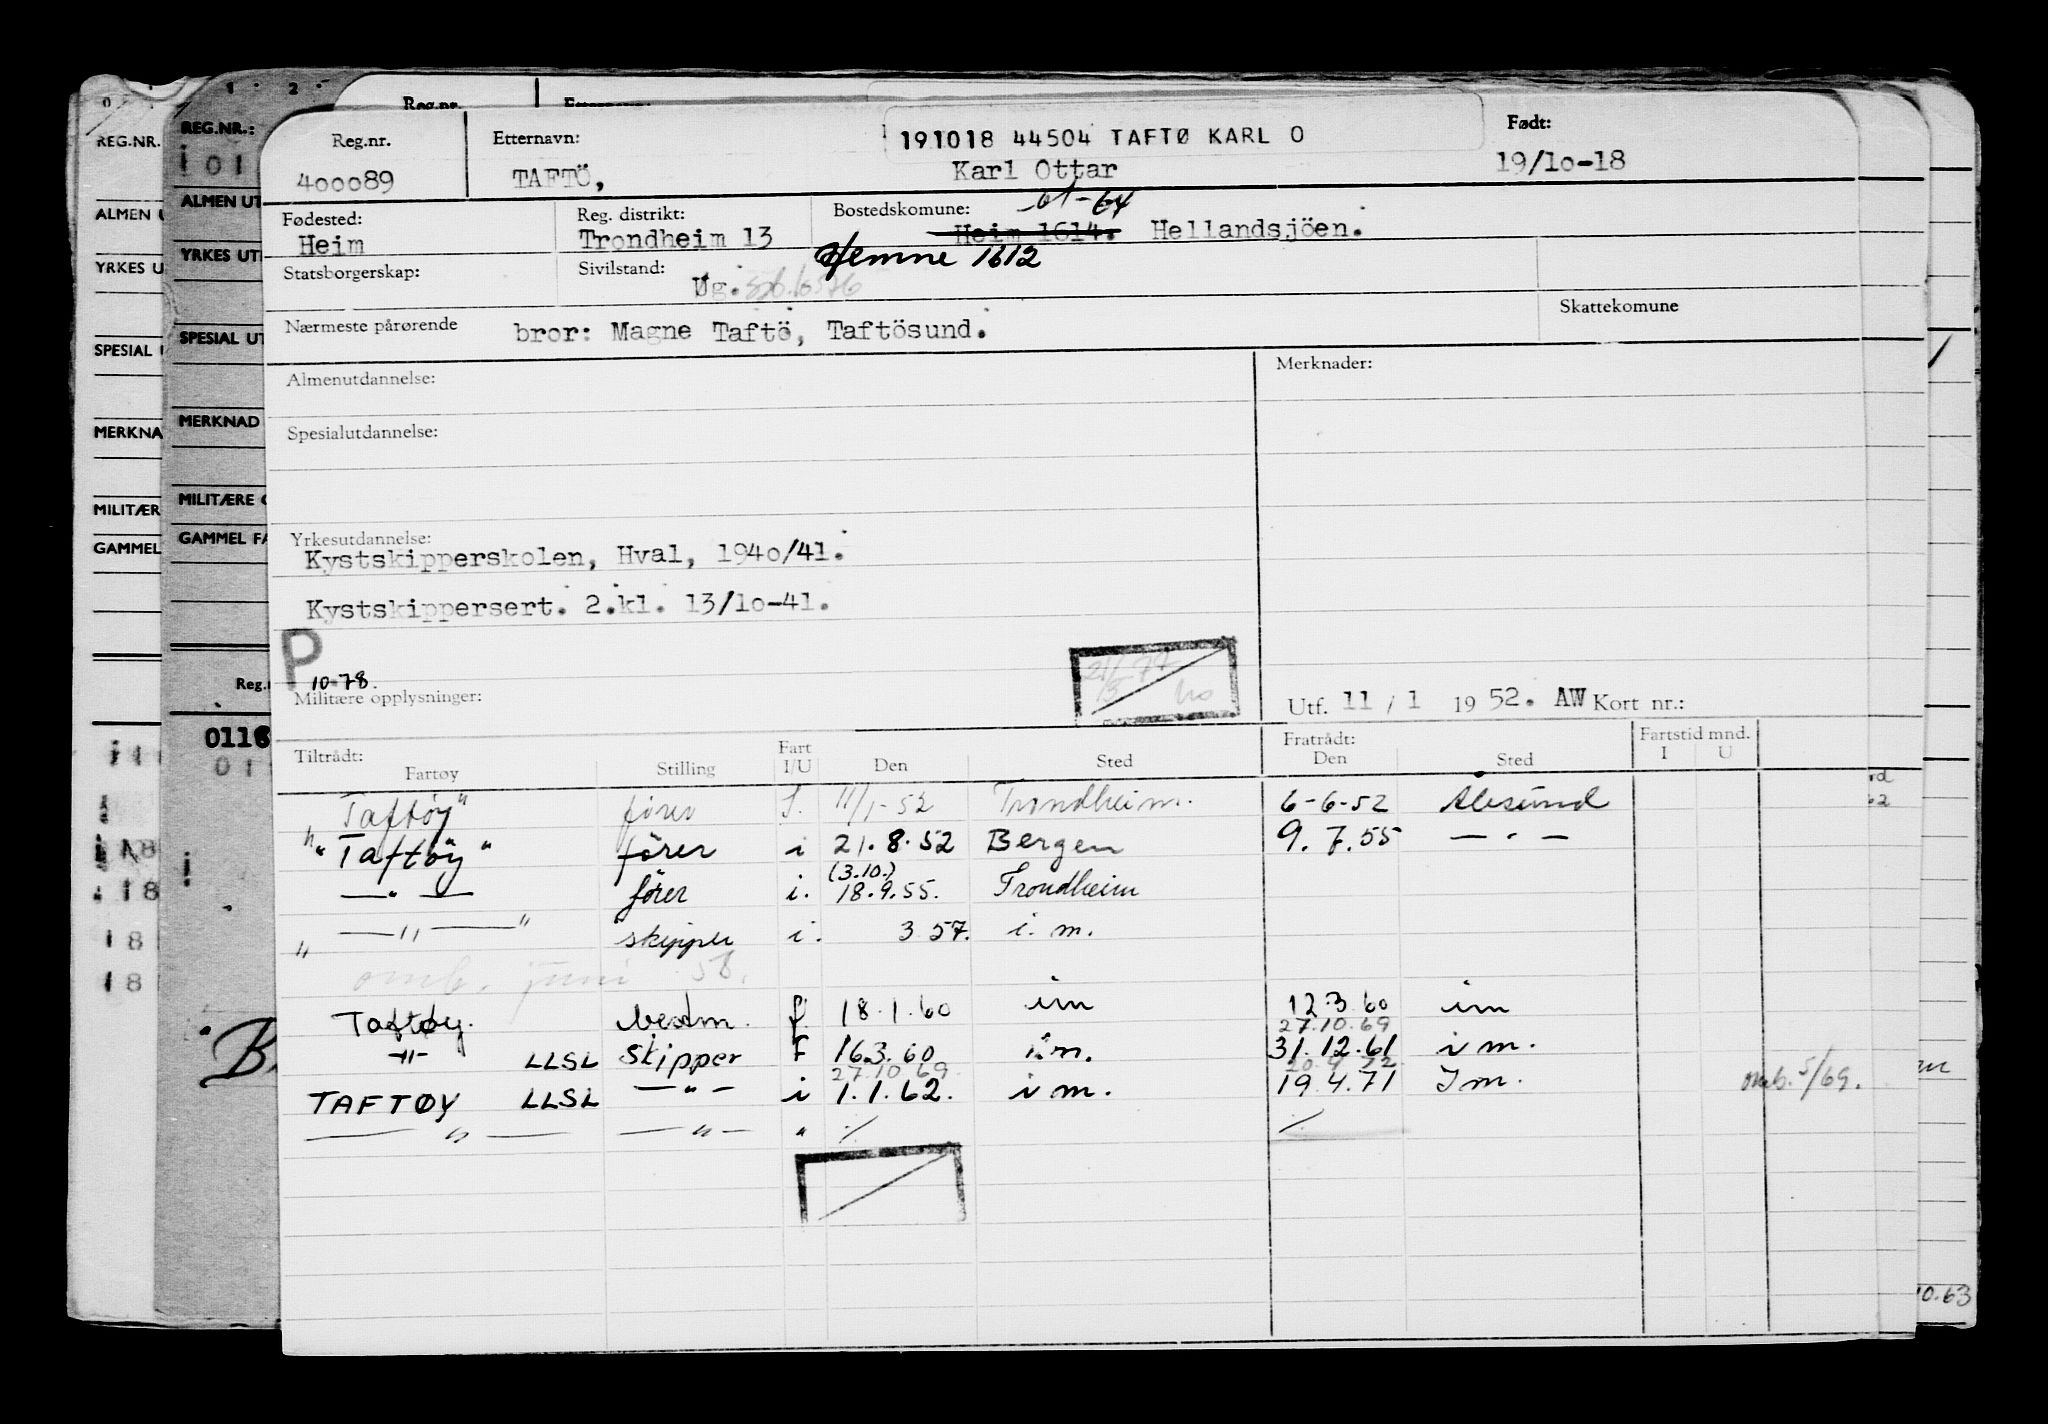 Reg.nr. Etternavn: 191018 44504 TAFTØ KARL O Født:
400089 TAFTÖ, Karl Ottar 19/10-18
Fødested: Reg. distrikt: Bostedskomune: -64
Heim Trondheim 13 Heim 1614. Hellandsjöen.
Hemne 1612
Statsborgerskap: Sivilstand:
Ug.
Nærmeste pårørende bror: Magne Taftö, Taftösund. Skattekomune
Almenutdannelse: Merknader:
Spesialutdannelse:
Yrkesutdannelse:
Kystskipperskolen, Hval, 1940/41.
Kystskippersert. 2.kl. 13/10-41.
P
10-78.
Militære opplysninger: Utf. 11 / 1 19 52. AW Kort nr.:
Tiltrådt: Fart Fratrådt: Fartstid mnd.
Fartøy Stilling I/U Den Sted Den Sted I U
Taftøy" fører 11/1-52 Trondheim. 6-6-52 Ålesund
"Taftøy" fører i 21.8.52 Bergen 9.7.55 — " —
(3.10.)
— " — fører i. 18.9.55. Trondheim
" — " — " skipper i. 3 57. i.m.
omb. juni 58.
Taftøy. bestm. f 18.1.60 im 12.3.60 im
27.10.69
-"- LLSL skipper F 16.3.60 i.m. 31.12.61 i m.
27.10.69 20.4.72
TAFTØY LLSL — " — i 1.1.62. i m. 19.4.71 I m. omb. 5/69.
— " — — " — " ./. ./.
REG.NR.
ALMEN U
YRKES U
SPESIAL U
MERKNA
MILITÆR
GAMMEL
REG.NR.:
ALMEN UT
YRKES UT
SPESIAL UT
MERKNAD
MILITÆRE
GAMMEL FA
10.63